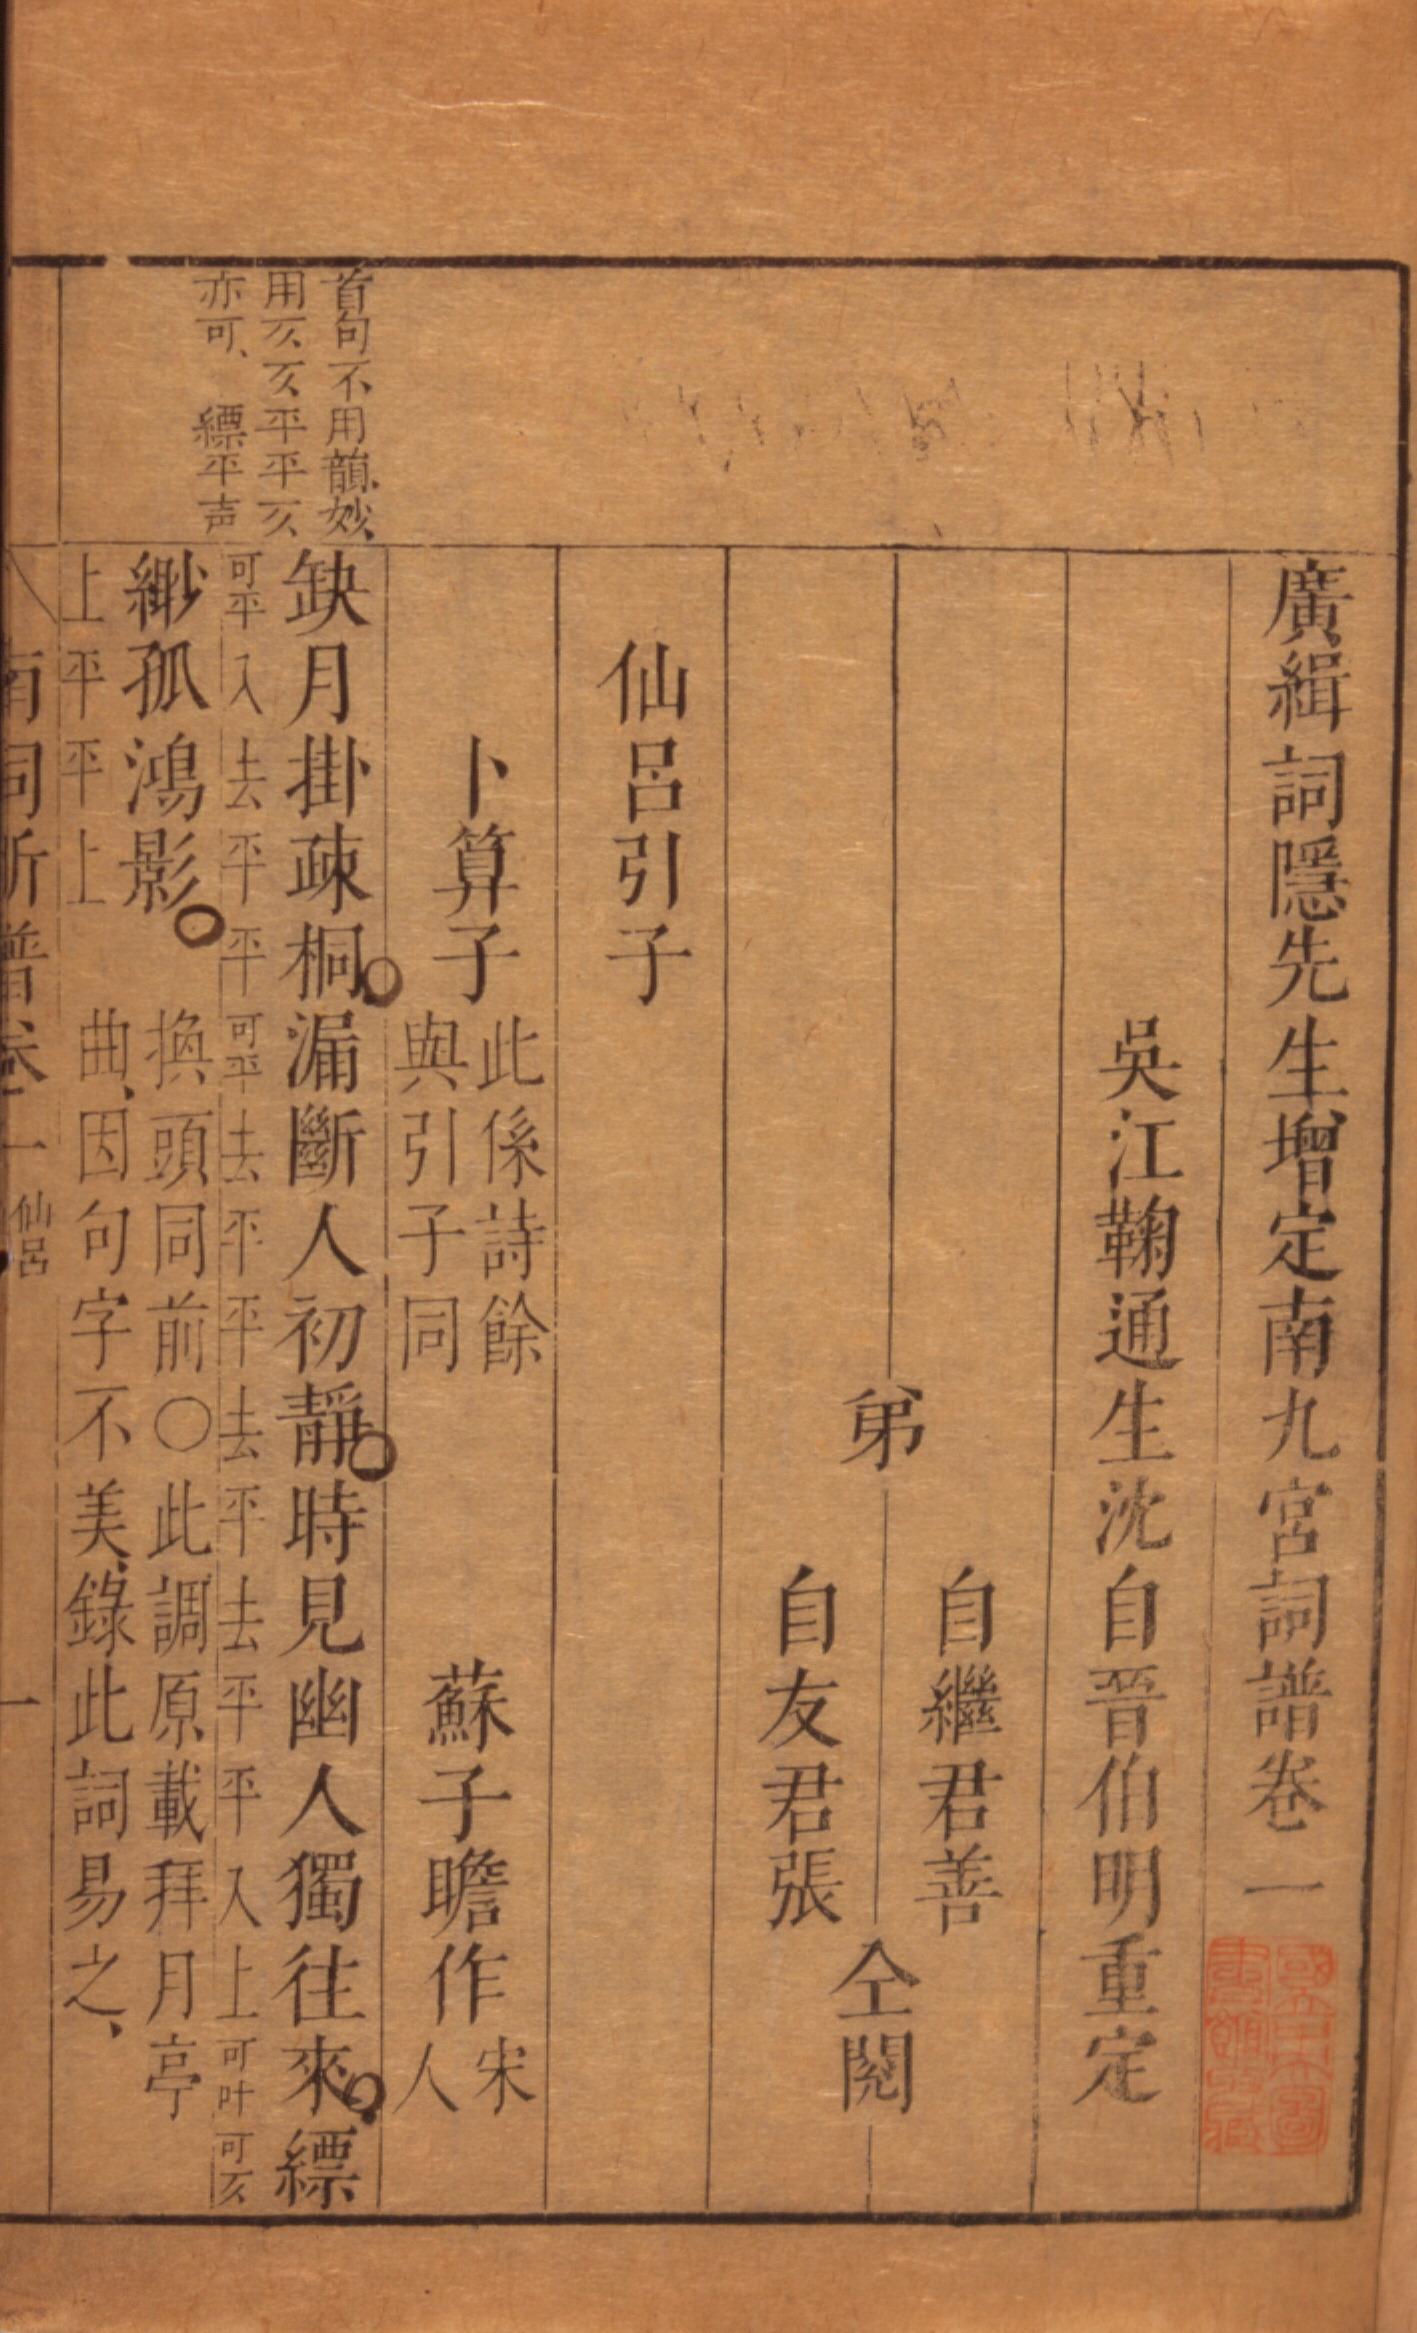 廣緝詞隱先生增定南九宮詞譜卷一
吳江鞠通生沈自晉伯明重定
弟
自繼君善
自友君張
仝閱
仙呂引子
卜算子
此係詩餘
與引子同
蘇子瞻作
宋
人
首句不用韻、妙、
用仄仄平平仄
亦可、 縹平声
缺月掛疎桐。漏斷人初靜。時見幽人獨往來。縹
可平入去平平可平去平平去平去平平入上可叶可仄
緲孤鴻影。
上平平上
換頭同前〇此調原載拜月亭
曲、因句字不美、錄此詞易之、
南詞新譜卷一 仙呂 一